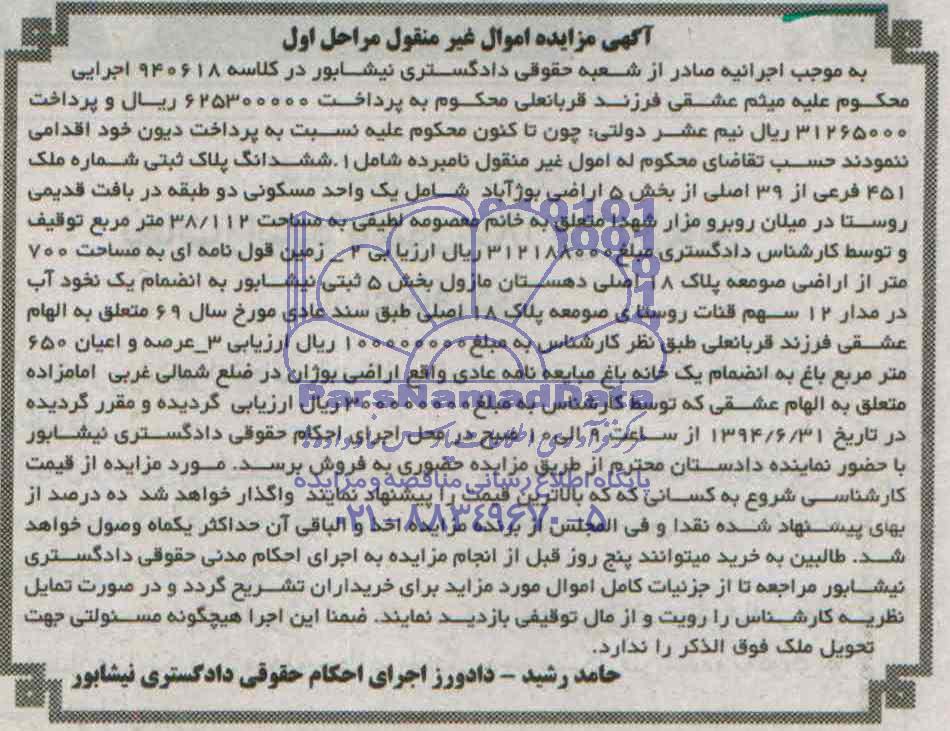 آگهی مزایده اموال غیر منقول مراحل اول
به موجب اجرائیه صادر از شعبه حقوقی دادگستری نیشابور در کلاسه ۹۴۰۶۱۸ اجرایی
محکوم علیه میثم عشقی فرزند قربانعلی محکوم به پرداخت ۶۲۵۳۰۰۰۰۰ ریال و پرداخت
۳۱۲۶۵۰۰۰ ریال نیم عشر دولتی: چون تا کنون محکوم علیه نسبت به پرداخت دیون خود اقدامی
ننمودند حسب تقاضای محکوم له امول غیر منقول نامبرده شامل۱.ششدانگ پلاک ثبتی شماره ملک
۴۵۱ فرعی از ۳۹ اصلی از بخش ۵ اراضی بوژآباد شامل یک واحد مسکونی دو طبقه در بافت قدیمی
روستا در میلان روبرو مزار شهدا متعلق به خانم معصومه لطیفی به مساحت ۳۸/۱۱۲ متر مربع توقیف
و توسط کارشناس دادگستری مبلغ ۳۱۲۱۸۸۰۰۰ ریال ارزیابی ۲ـ زمین قول نامه ای به مساحت ۷۰۰
متر از اراضی صومعه پلاک ۱۸ اصلی دهستان مازول بخش ۵ ثبتی نیشابور به انضمام یک نخود آب
در مدار ۱۲ سهم قنات روستای صومعه پلاک ۱۸ اصلی طبق سند عادی مورخ سال ۶۹ متعلق به الهام
عشقی فرزند قربانعلی طبق نظر کارشناس به مبلغ ۱۰۰۰۰۰۰۰۰ ریال ارزیابی ۳_عرصه و اعیان ۶۵۰
متر مربع باغ به انضمام یک خانه باغ مبایعه نامه عادی واقع اراضی بوژان در ضلع شمالی غربی امامزاده
متعلق به الهام عشقی که توسط کارشناس به مبلغ ریال ارزیابی گردیده و مقرر گردیده
در تاریخ ۱۳۹۴/۶/۳۱ از ساعت ۹ الی ۱۰ صبح در محل اجرای احکام حقوقی دادگستری نیشابور
با حضور نماینده دادستان محترم از طریق مزایده حضوری به فروش برسد. مورد مزایده از قیمت
کارشناسی شروع به کسانی که که بالاترین قیمت را پیشنهاد نمایند واگذار خواهد شد ده درصد از
بهای پیشنهاد شده نقدا و فی المجلس از برنده مزایده اخذ و الباقی آن حداکثر یکماه وصول خواهد
شد. طالبین به خرید میتوانند پنج روز قبل از انجام مزایده به اجرای احکام مدنی حقوقی دادگستری
نیشابور مراجعه تا از جزئیات کامل اموال مورد مزاید برای خریداران تشریح گردد و در صورت تمایل
نظریه کارشناس را رویت و از مال توقیفی بازدید نمایند. ضمنا این اجرا هیچگونه مسئولتی جهت
تحویل ملک فوق الذکر را ندارد.
حامد رشید - دادورز اجرای احکام حقوقی دادگستری نیشابور
ParsNamadData
پایگاه اطلاع رسانی مناقصه و مزایده
۰۲۱-۸۸۳۴۹۶۷۰-۵